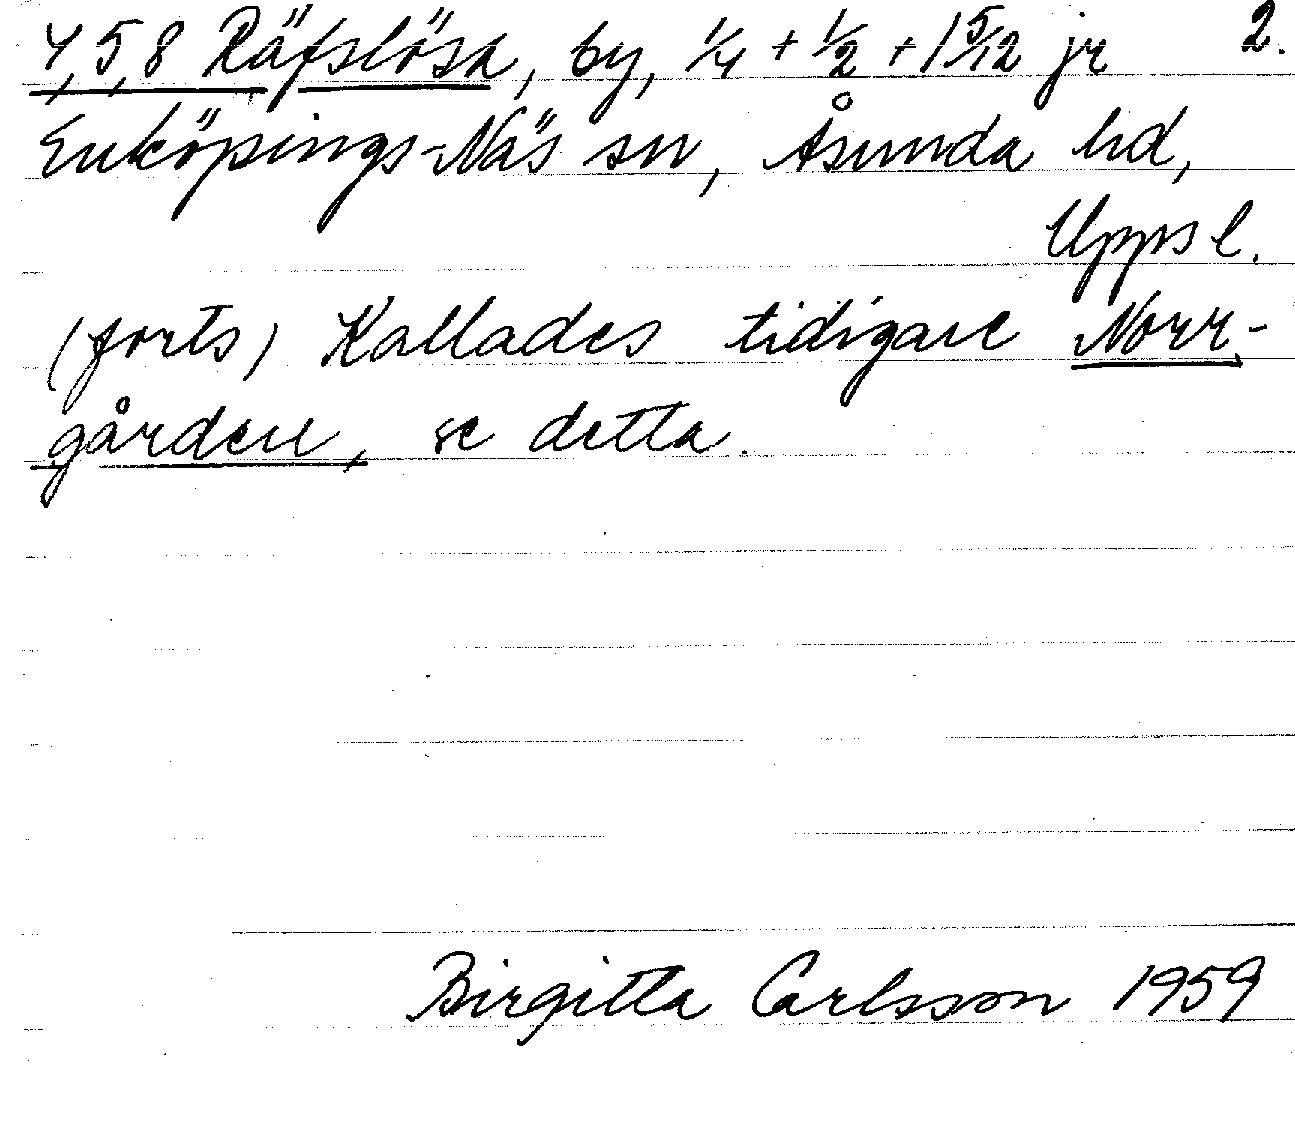 4,5,8 Räfslösa, by, 1/4 + 1/2 + 1 5/12 jr 2.
Enköpings-Näs sn, Åsunda hd,
Upps l.
(forts) Kallades tidigare Norr-
gården, se detta.
Birgitta Carlsson 1959